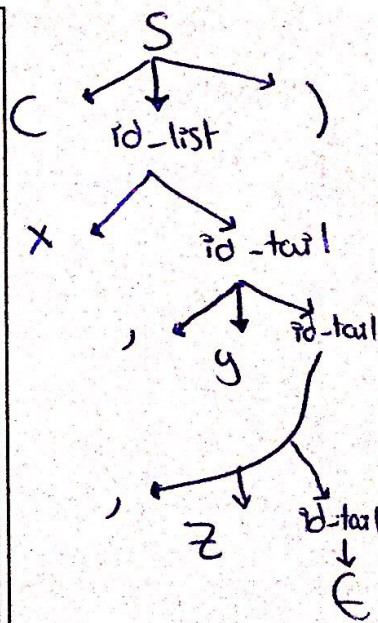 S
( id_list )
x id-tail
, y id-tail
, z id-tail
ϵ